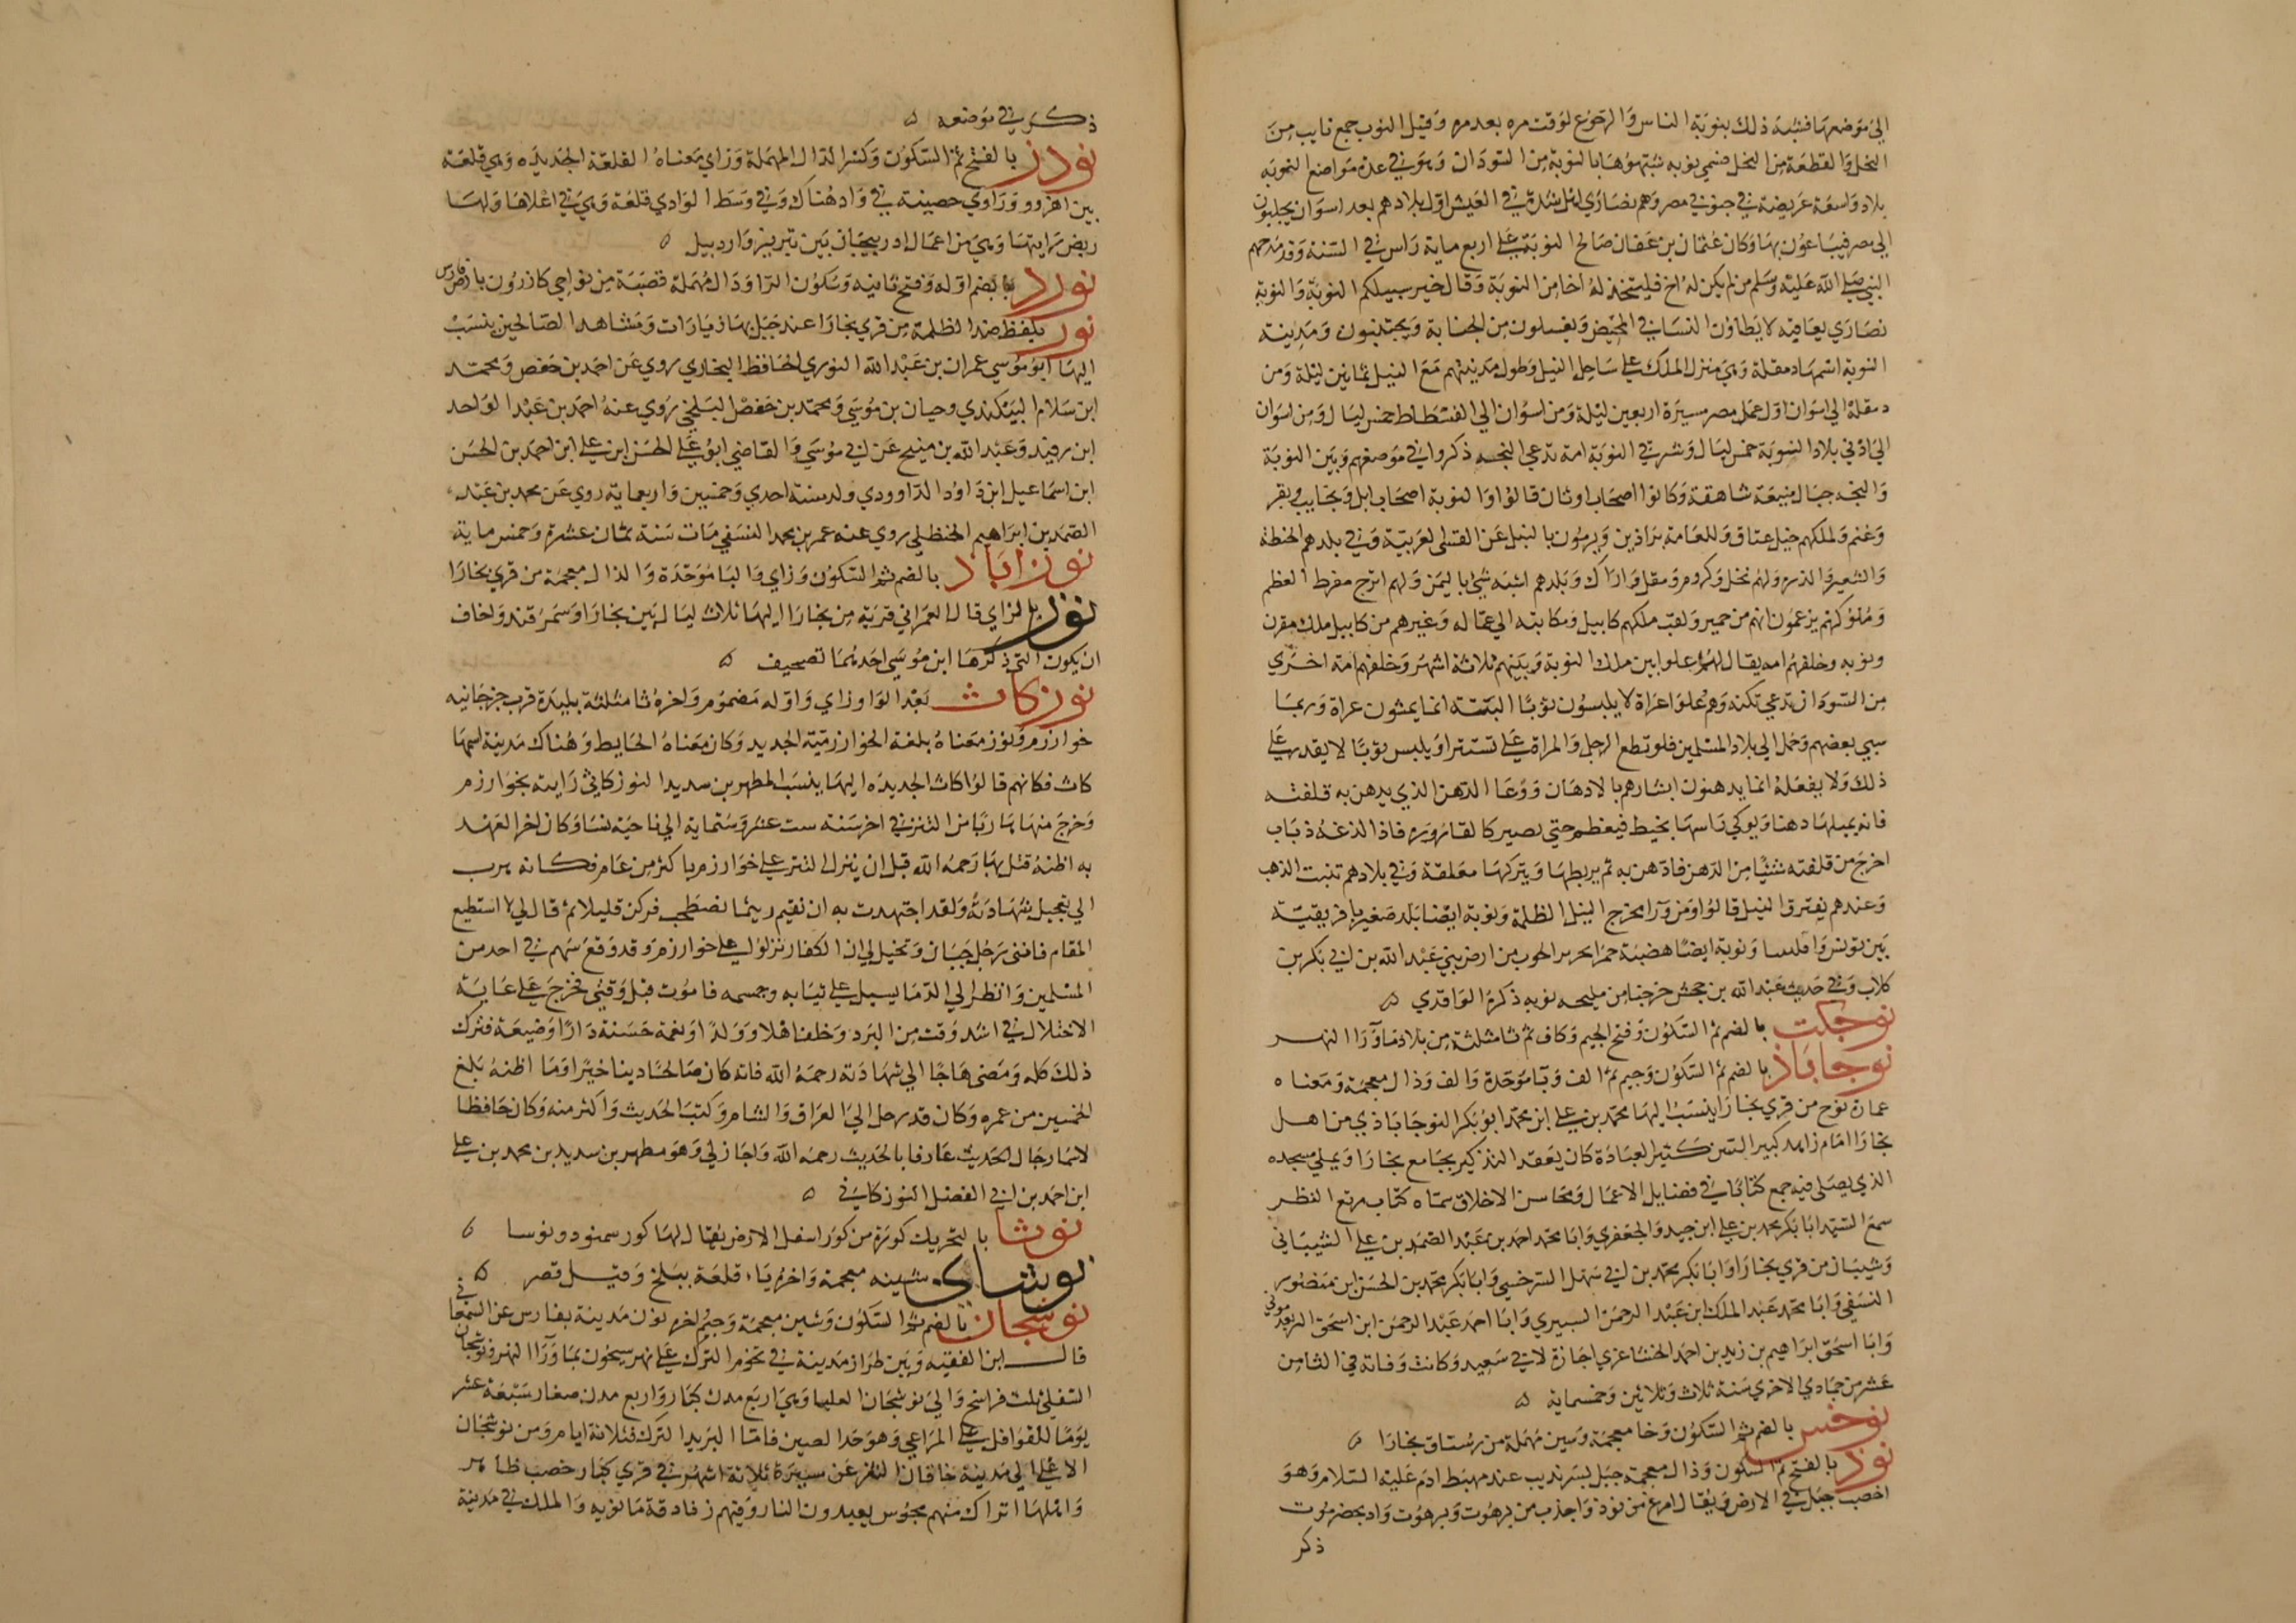 الى موضعها فشبه ذلك بنوبة الناس والرجوع لوقت مره بعد مره وقيل النوب جمع نايب من
النحل والقطعة من النحل تسمى نوبه شبهوها بالنوبة من السودان وهو في عدة مواضع النوبه
بلاد واسعة عريضة في جنوبي مصر وهم نصارى اهل شدة في العيش اول بلادهم بعد اسوان يجلبون
الى مصر فيباعون بها وكان عثمان بن عفان صالح النوبة على اربع ماية راس في السنة وقد مدحهم
النبي صلى الله عليه وسلم من لم يكن له اخ فليتخذ له اخا من النوبة وقال خير سبيكم النوبة والنوبة
نصارى يعاقبة لا يطاؤن النسا في المحيض ويغسلون من الجنابة ويختتنون ومدينة
النوبة اسمها دمقلة وهي منزل الملك على ساحل النيل وطول مدينتهم مع النيل ثمانين ليلة ومن
دمقلة الى اسوان اول عمل مصر مسيرة اربعين ليلة ومن اسوان الى الفسطاط خمس ليال ومن اسوان
الى ادنى بلاد النوبة خمس ليال وشرقي النوبة امة تدعى البجه ذكروا في موضعهم وبين النوبة
والبجه جبال منيعة شاهقة وكانوا اصحاب اوثان قالوا والنوبة اصحاب ابل ونجايب وبقر
وغنم ولملكهم خيل عتاق وللعامة براذين ويرمون بالنبل عن القسى العربية وفي بلدهم الحنطة
والشعير والذره ولهم نخل وكروم ومقل واراك وبلدهم اشبه شي باليمن ولهم اترج مفرط العظم
وملوكهم يزعمون انهم من حمير ولقب ملكهم كابيل وكتابته الى عماله وغيرهم من كابيل ملك مقرن
ونوبه وخلفهم امه يقال لهم علوا بين ملك النوبة وبينهم ثلاثة اشهر وخلفهم امة اخرى
من السودان تدعى تكنه وهم علوا عراة لا يلبسون ثوبا البتة انما يمشون عراة وربما
سبي بعضهم وحمل الى بلاد المسلمين فلو قطع الرجل والمراة على تستتر او يلبس ثوبا لا يقدر على
ذلك ولا يفعله انما يدهنون ابشارهم بالادهان ووعا الدهن الذي يدهن به قلفته
فانه يملها دهنا ويوكي راسها بخيط فيعظم حتى يصير كالقارورة فاذا لدغه ذباب
اخرج من قلفته شيئا من الدهن فادهن به ثم يربطها ويتركها معلقة وفي بلادهم تنبت الذهب
وعندهم يفترق النيل قالوا ومن ورا مخرج النيل الظلمة ونوبة ايضا بلد صغير بافريقية
بين تونس واقليبيا ونوبة ايضا هضبة حمرا من ارض بني عبد الله بن ابي بكر بن
كلاب وفي حديث عبد الله بن جحش خرجنا من مليحه نوبه ذكره الواقدي ٥
نوجكث بالضم ثم السكون وفتح الجيم وكاف ثم ثا مثلثة من بلاد ما ورا النهر
نوجاباذ بالضم ثم السكون وجيم ثم الف وبا موحدة والف وذال معجمة ومعناه
عمارة نوح من قرى بخارا ينسب اليها محمد بن علي ابن محمد ابو بكر النوجاباذي من اهل
بخارا امام زاهد كبير السن كثير العبادة كان يعقد التذكير بجامع بخارا ويملي مسجده
الذي يصلى فيه جمع كتابا في فضايل الاعمال ومحاسن الاخلاق سماه كتاب مرتع النظر
سمع السيد ابا بكر محمد بن علي ابن حيد والجعفري وابا محمد احمد بن عبد الصمد بن علي الشيباني
وشيبان من قرى بخارا وابا بكر محمد بن ابي سهل السرخسي وابا بكر محمد بن الحسن ابن منصور
النسفي وابا محمد عبد الملك ابن عبد الرحمن السبيري وابا احمد عبد الرحمن ابن اسحق الريغدموني
وابا اسحق ابراهيم بن زيد بن احمد الخشاغري اجازة لابي سعيد وكانت وفاته في الثامن
عشر من جمادى الاخرى سنة ثلاث وثلاثين وخمسماية ٥
نوخس بالضم ثم السكون وخا معجمة وسين مهملة من رستاق بخارا ٥
نوذ بالفتح ثم السكون وذال معجمة جبل بسرنديب عند مهبط ادم عليه السلام وهو
اخصب جبل في الارض ويقال امرع من نوذ واجذب من برهوت وبرهوت واد بحضرموت
ذكر
ذكر في موضعه ٥
نودز بالفتح ثم السكون وكسر الدال المهملة وزاي معناه القلعة الجديده وهي قلعة
بين اهر وو وراوي حصينة في واد هناك وفي وسط الوادي قلعة وهي في اعلاها ولها
ربض رايتها وهي من اعمال اذربيجان بين تبريز واردبيل ٥
نورد بضم اوله وفتح ثانيه وسكون الرا ودال مهملة قصبة من نواحي كازرون بارض فارس
نور بلفظ ضد الظلمة من قرى بخارا عند جبل بها زيارات ومشاهد الصالحين ينسب
اليها ابو موسى عمران بن عبد الله النوري الحافظ البخاري روى عن احمد بن حفص ومحمد
ابن سلام البيكندي وحيان بن موسى ومحمد بن حفص البلخي روى عنه احمد بن عبد الواحد
ابن رفيد وعبد الله بن منيح عن ابي موسى والقاضي ابو علي الحسن ابن علي ابن احمد بن الحسن
ابن اسماعيل ابن داود الداوودي ولد سنة احدى وخمسين واربعماية روى عن محمد بن عبد
الصمد بن ابراهيم الحنظلي روى عنه عمر بن محمد النسفي مات سنة ثمان عشرة وخمس ماية
نوزاباذ بالضم ثم السكون وزاي والبا موحدة والذال معجمة من قرى بخارا
نوز بالزاي قال العمراني قرية من بخارا اليها ثلاث ليال بين بخارا وسمرقند واخاف
ان يكون التي ذكرها ابن موسى احدهما تصحيف ٥
نوزكاث بعد الواو زاي واوله مضموم واخره ثا مثلثة بليدة قرب جرجانيه
خوارزم ونوز معناه بلغة الخوارزمية الجديد وكان معناه الحايط وهناك مدينة اسمها
كاث فكانهم قالوا كاث الجديده اليها ينسب المطهر بن سديد النوزكاثي رايته بخوارزم
وخرج منها هاربا من التتر في اخر سنه ست عشر وستماية الى ناحية نسا وكان اخر العهد
به اظنه قتل بها رحمه الله قبل ان ينزل التتر على خوارزم باكثر من عام فكانه هرب
الى تعجيل شهادته ولقد اجتهدت به ان نقيم ريثما نصطحب فركن قليلا ثم قال لي لا استطيع
المقام فانني رجل جبان وتخيل لي ان الكفار نزلوا على خوارزم وقد وقع سهم في احد من
المسلمين وانظر الى الدما يسيل على ثيابه وجسمه فاموت قبل وقتي فخرج على غاية
الاختلال في اشد وقت من البرد وخلف اهلا وولدا ونعمة حسنة دارا وضيعة فترك
ذلك كله ومضى هاجا الى شهادته رحمه الله فانه كان صالحا دينا خيرا وما اظنه بلغ
الخمسين من عمره وكان قد رحل الى العراق والشام وكتب الحديث واكثر منه وكان حافظا
لاسما رجال الحديث عارفا بالحديث رحمه الله واجاز لي وهو مطهر بن سديد بن محمد بن علي
ابن احمد بن ابي الفضل النوزكاثي ٥
نوشا بالتحريك كورة من كور اسفل الارض يقال لها كور سمنود ونوسا ٥
نوشاى شينه معجمة واخره ياء قلعة ببلخ وقيل قصر ٥
نوشجان بالضم ثم السكون وشين معجمة وجيم اخره نون مدينة بفارس عن السمعاني
قال ابن الفقيه وبين طراز مدينة في تخوم الترك على نهر سيحون بما ورا النهر ونوشجان
السفلى ثلث فراسخ والى نوشجان العليا وهي اربع مدن كبار واربع مدن صغار سبعة عشر
يوما للقوافل على المراعي وهو حد الصين فاما البريد الترك فثلاثة ايام ومن نوشجان
الاعلى الى مدينة خاقان التغزغز مسيرة ثلاثة اشهر في قرى كبار خصب ظاهر
واهلها اتراك منهم مجوس يعبدون النار وفيهم زنادقة مانويه والملك في مدينة